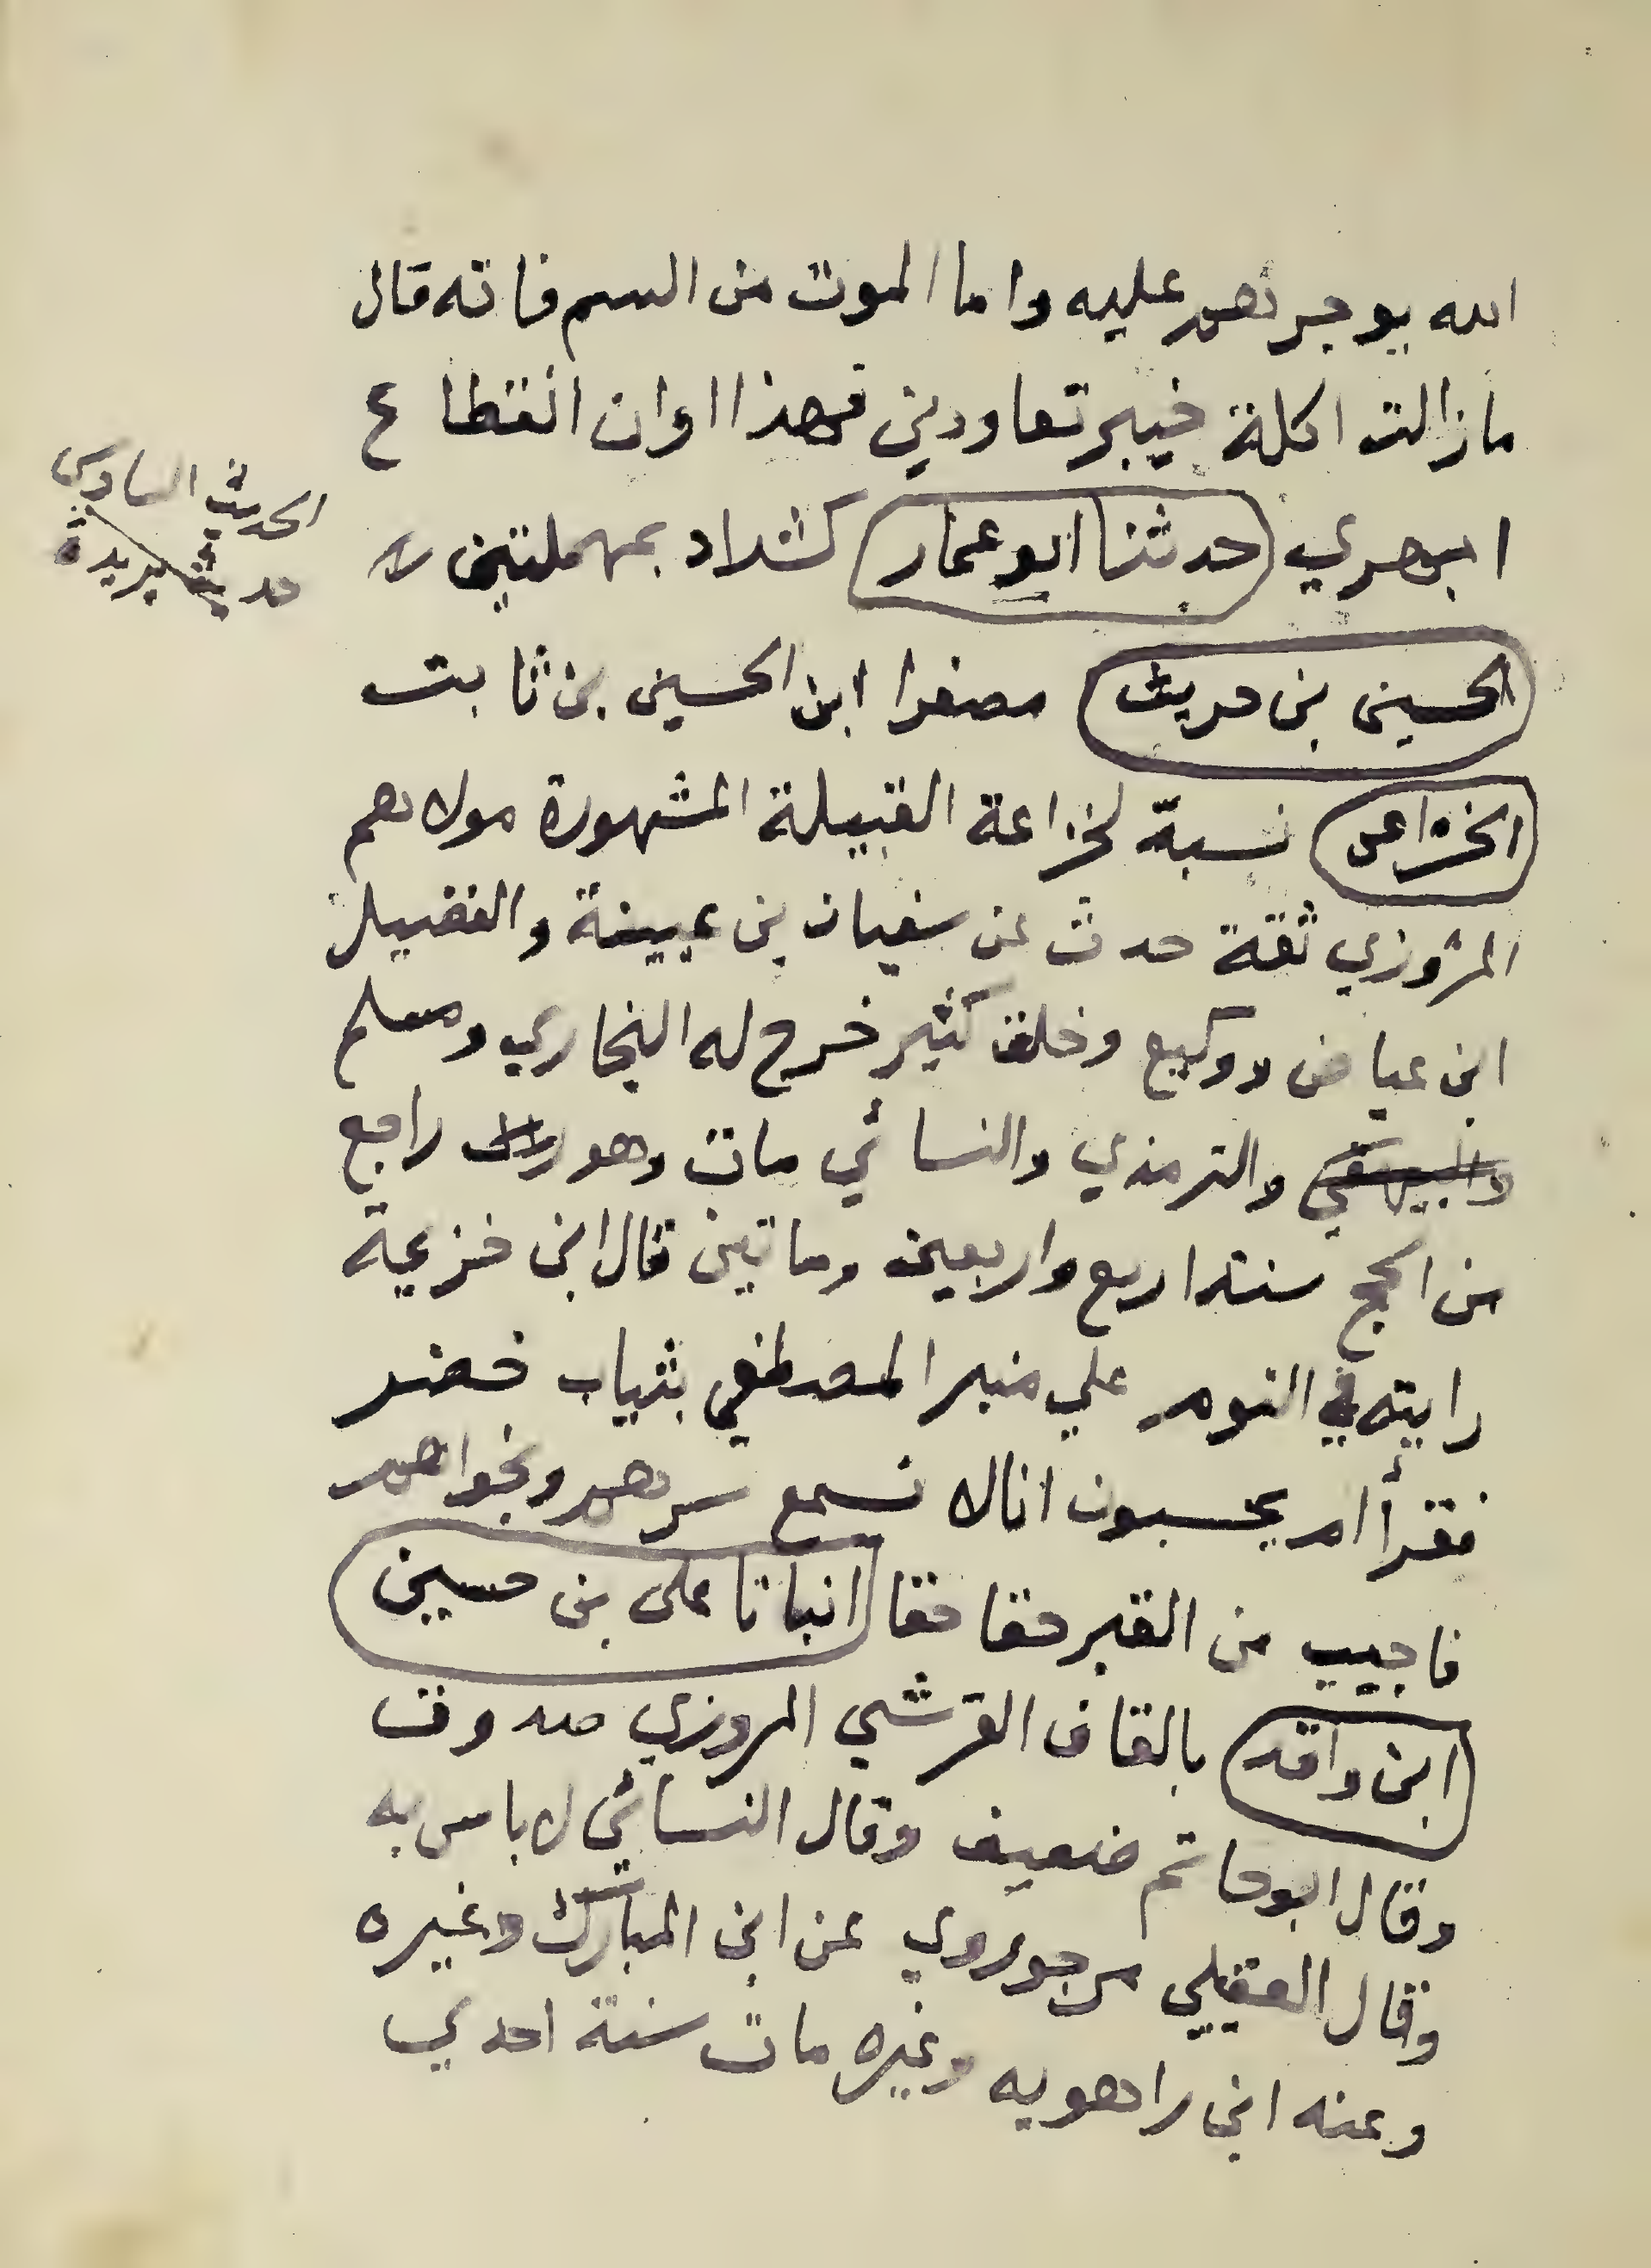 الله يوجرهم عليه واما الموت من السم فانه قال
مازالت اكلة خيبر تعاودني فهذا اوان انقطاع
ابهري حدثنا ابو عمار كشداد بمهملتين
الحديث السادس
حديث بريدة
الحسين بن حريث مصغرا ابن الحسين بن ثابت
الخزاعى نسبة لخزاعة القبيلة المشهورة مولاهم
المروزي ثقة حدث عن سفيان بن عيينة والفضيل
ابن عياض ووكيع وخلق كثير خرج له البخاري ومسلم
والبيهقي والترمذي والنسائي مات وهو راجع
من الحج سنة اربع واربعين وماتين قال ابن خزيمة
رايته في النوم علي منبر المصطفي بثياب خضر
فقرأ أم يحسبون انا لا نسمع سرهم ونجواهم
فاجيب من القبر حقا حقا انبانا على بن حسين
ابن واقد بالقاف القرشي المروزي صدوق
وقال ابو حاتم ضعيف وقال النسائي لا باس به
وقال العقيلي مرجو روي عن ابن المبارك وغيره
وعنه ابن راهويه وغيره مات سنة احدي